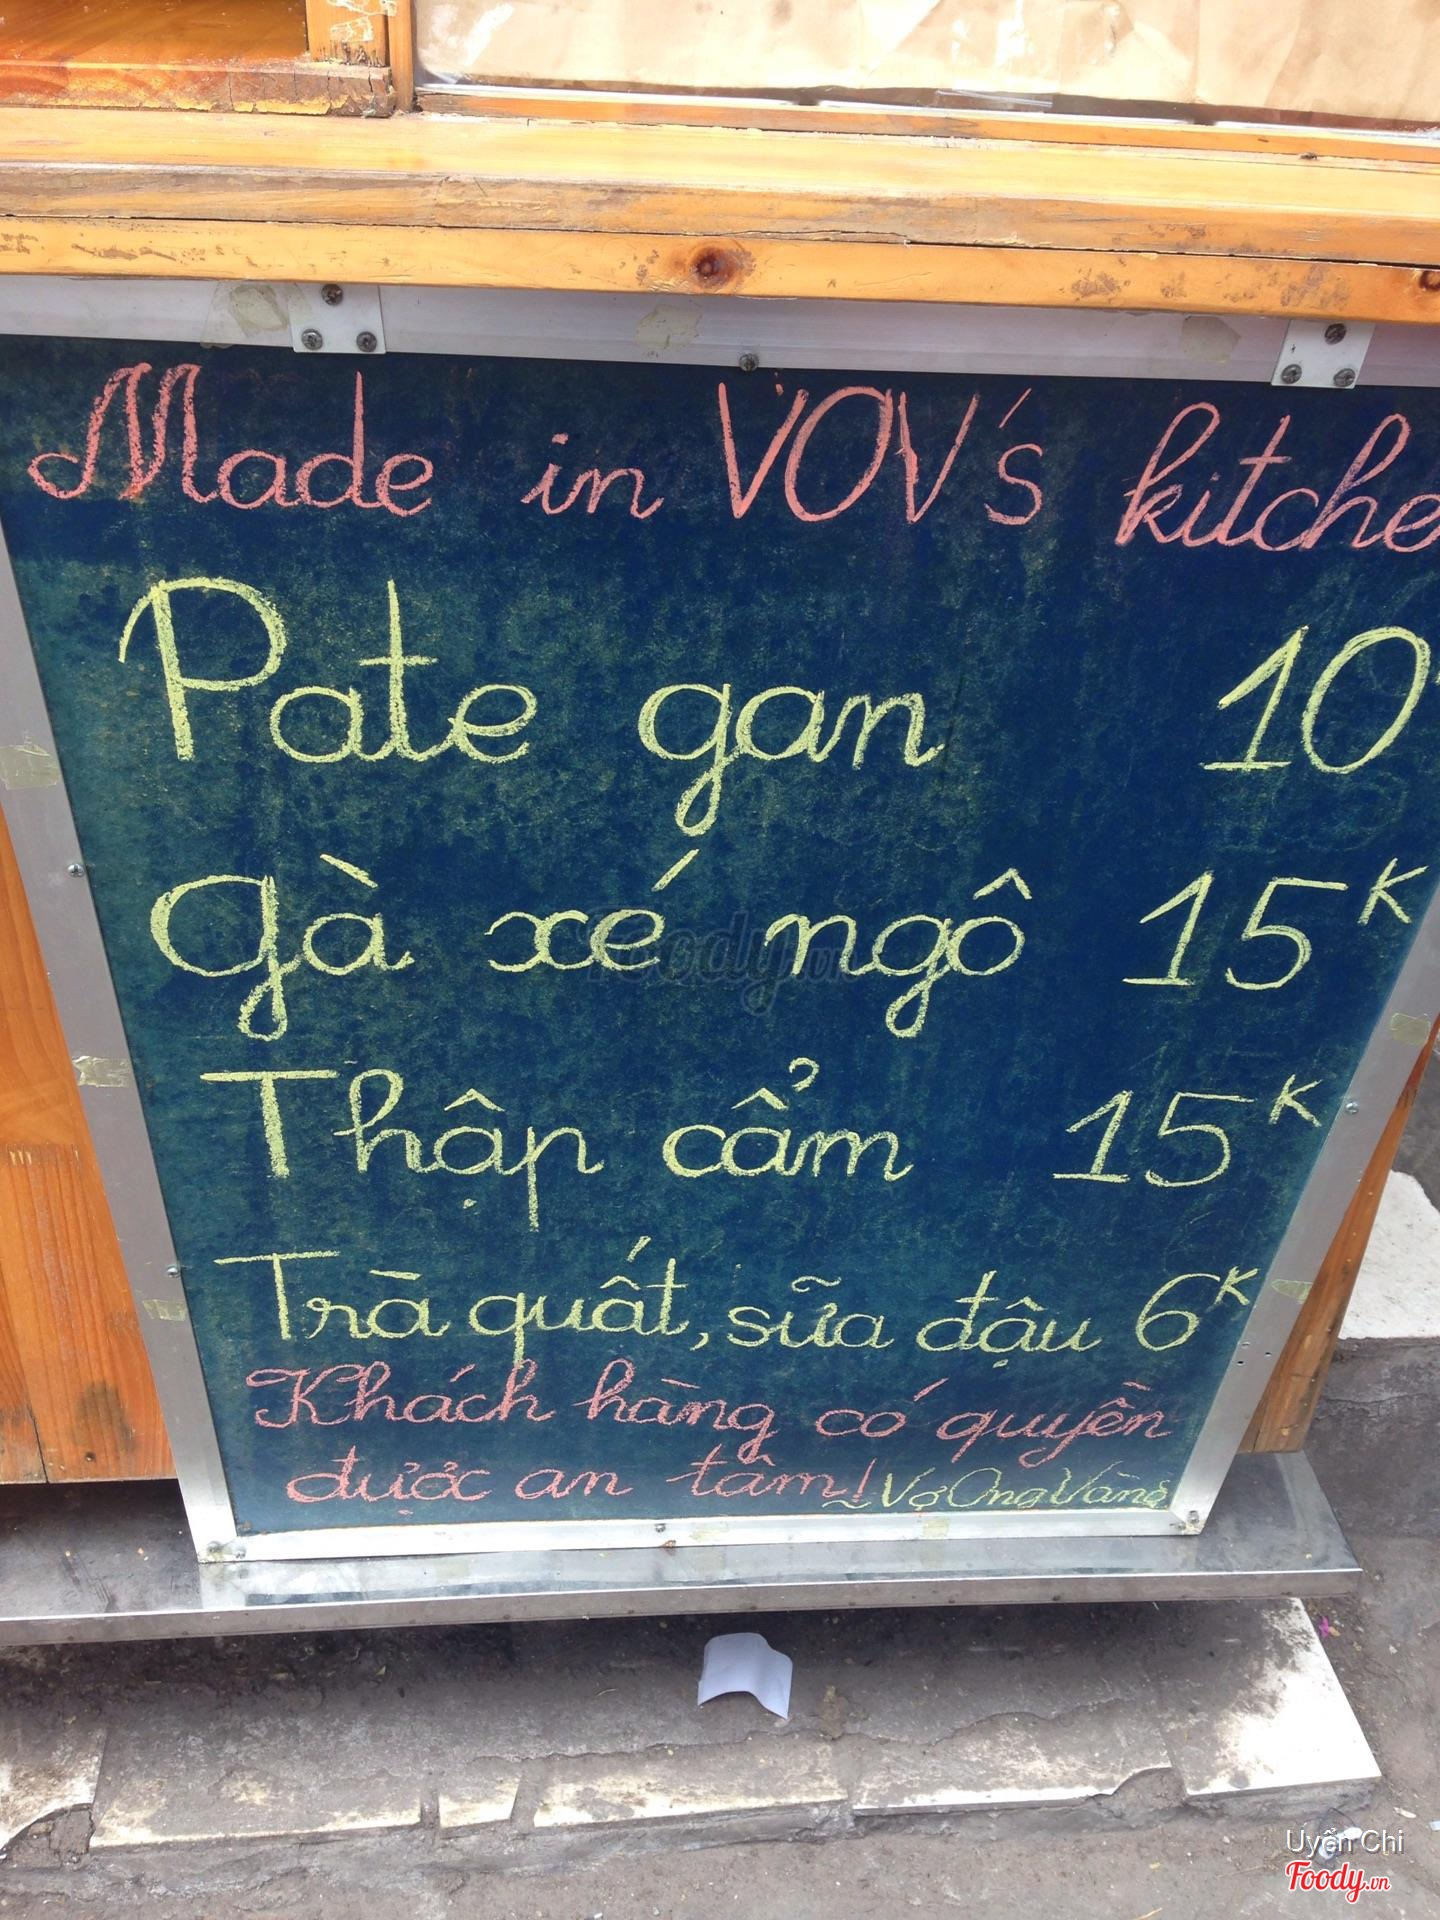 Made in VOV's kitche
Pate gan 10
Gà xé ngô 15K
Thập cẩm 15K
Trà quất, sữa đậu 6K
Khách hàng có quyền
được an tâm! ~VợOngVàng
Foody.vn
Uyển Chi
Foody.vn